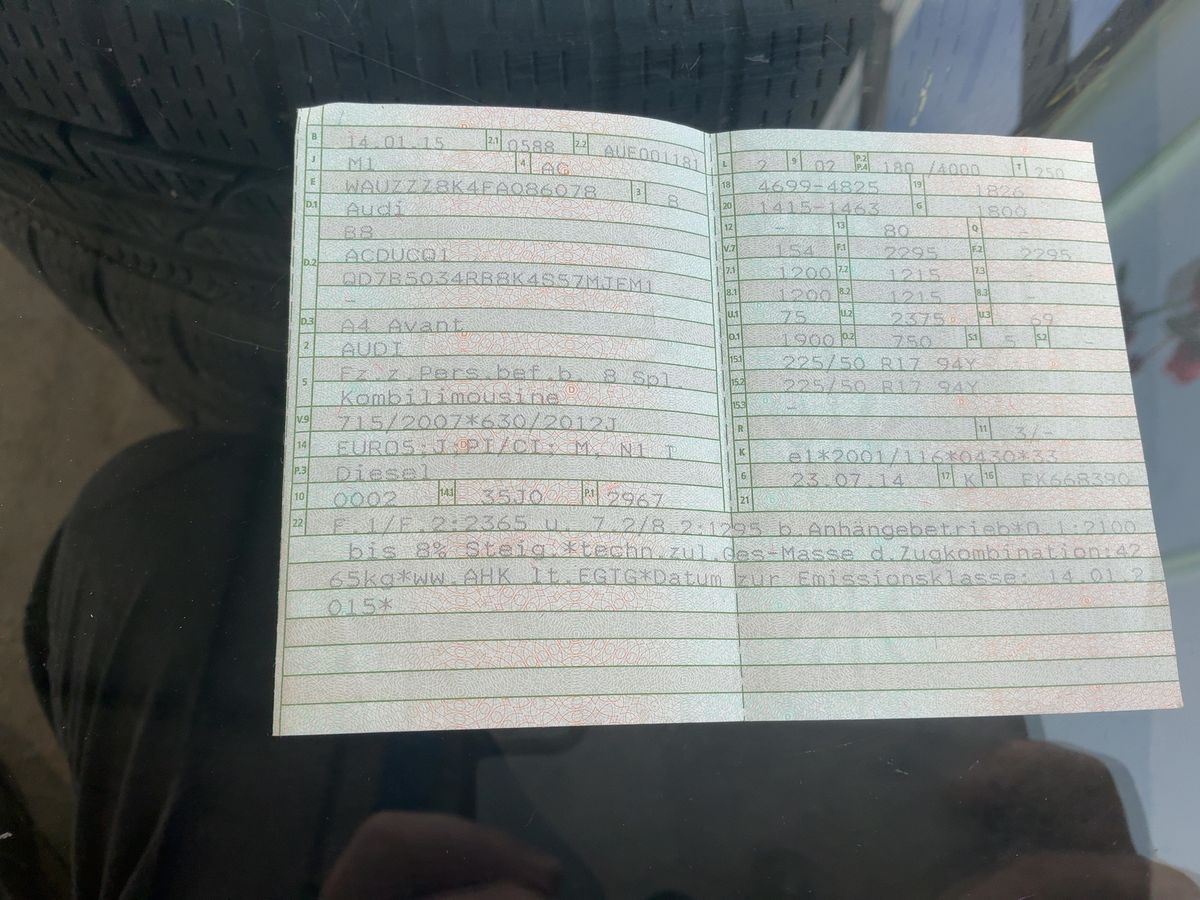 B 14.01.15 2.1 0588 2.2 AUF001181
J M1 4 AG
E WAUZZZ8K4FA086078 3 8
D.1 Audi
B8
D.2 ACDUCQ1
QD7B5034RB8K4S57MJEM1
-
D.3 A4 Avant
2 AUDI
5 Fz.z.Pers.bef.b. 8 Spl.
Kombilimousine
V.9 715/2007*630/2012J
14 EURO5;J;PI/CI; M, N1 I
P.3 Diesel
10 0002 14.1 35J0 P.1 2967
L 2 9 02 P.2 P.4 180 /4000 T 250
18 4699-4825 19 1826
20 1415-1463 G 1800
12 - 13 80 Q -
V.7 154 F.1 2295 F.2 2295
7.1 1200 7.2 1215 7.3 -
8.1 1200 8.2 1215 8.3 -
U.1 75 U.2 2375 U.3 69
O.1 1900 O.2 750 S.1 5 S.2 -
15.1 225/50 R17 94Y
15.2 225/50 R17 94Y
15.3 -
R 11 3/-
K e1*2001/116*0430*33
6 23.07.14 17 K 16 FK668390
21
22 F.1/F.2:2365 u. 7.2/8.2:1295 b.Anhängebetrieb*O.1:2100
bis 8% Steig.*techn.zul.Ges-Masse d.Zugkombination:42
65kg*ww.AHK lt.EGTG*Datum zur Emissionsklasse: 14.01.2
015*